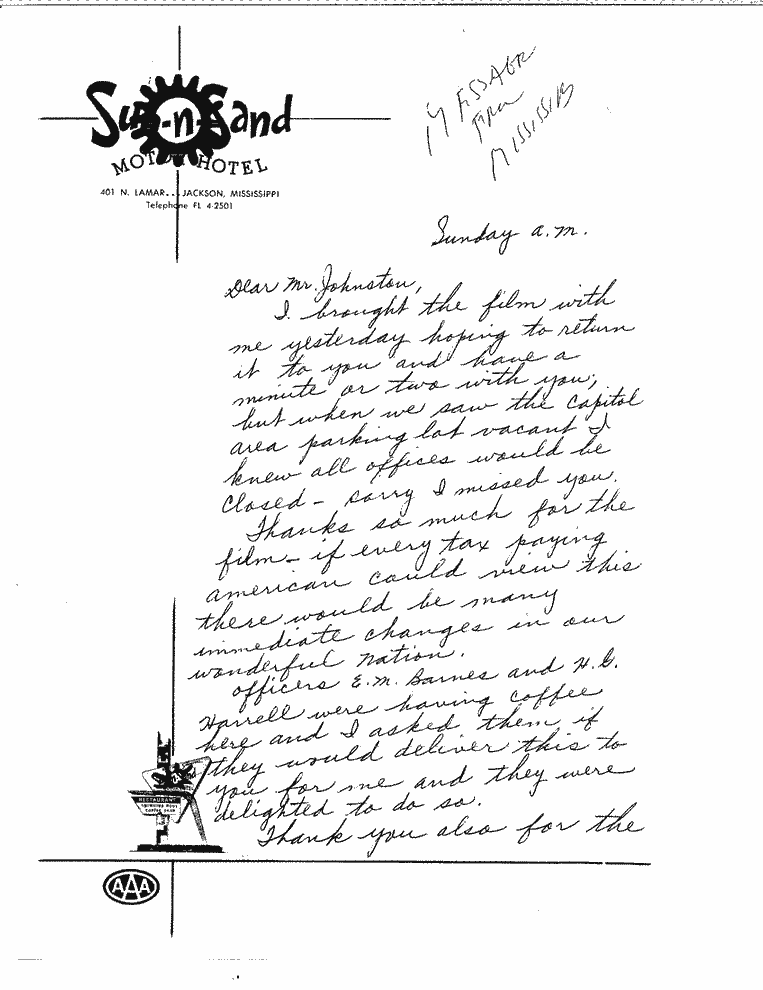 Sun-n-Sand
MOTOR HOTEL
401 N. LAMAR... JACKSON, MISSISSIPPI
Telephone FL 4-2501
MISSISSIPPI
Sunday a.m.
Dear Mr. Johnston,
I brought the film with
me yesterday hoping to return
it to you and have a
minute or two with you;
but when we saw the Capitol
area parking lot vacant I
knew all offices would be
closed - sorry I missed you.
Thanks so much for the
film - if every tax paying
american could view this
there would be many
immediate changes in our
wonderful nation.
officers E.M. Barnes and H.G.
Harrell were having coffee
here and I asked them if
they would deliver this to
you for me and they were
delighted to do so.
Thank you also for the
RESTAURANT
SWIMMING POOL
COFFEE SHOP
AAA